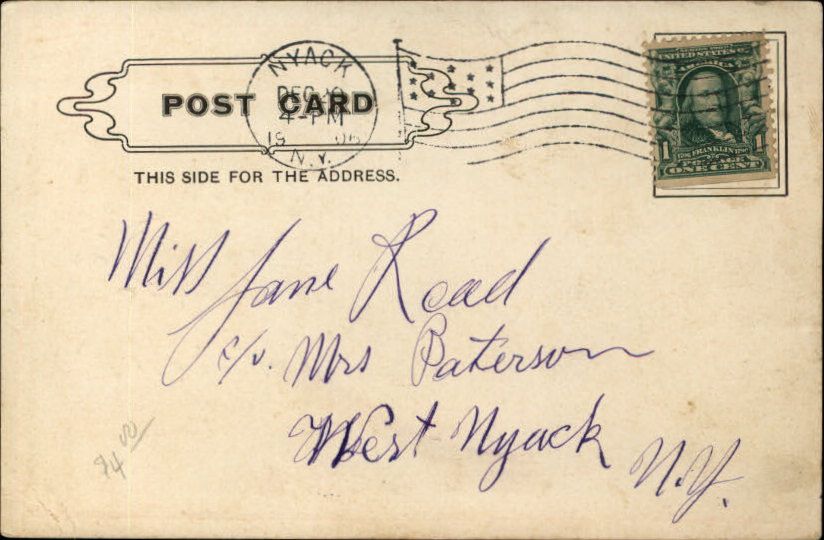 POST CARD
THIS SIDE FOR THE ADDRESS.
NYACK
DEC
4-PM
1906
N.Y.
UNITED STATES OF AMERICA
1 FRANKLIN 1
POSTAGE
ONE CENT
Miss Jane Road
c/o. Mrs Paterson
West Nyack N.Y.